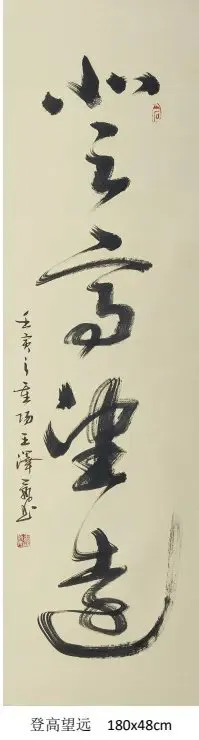 登高望远
壬寅之 王泽
登高望远 180x48cm